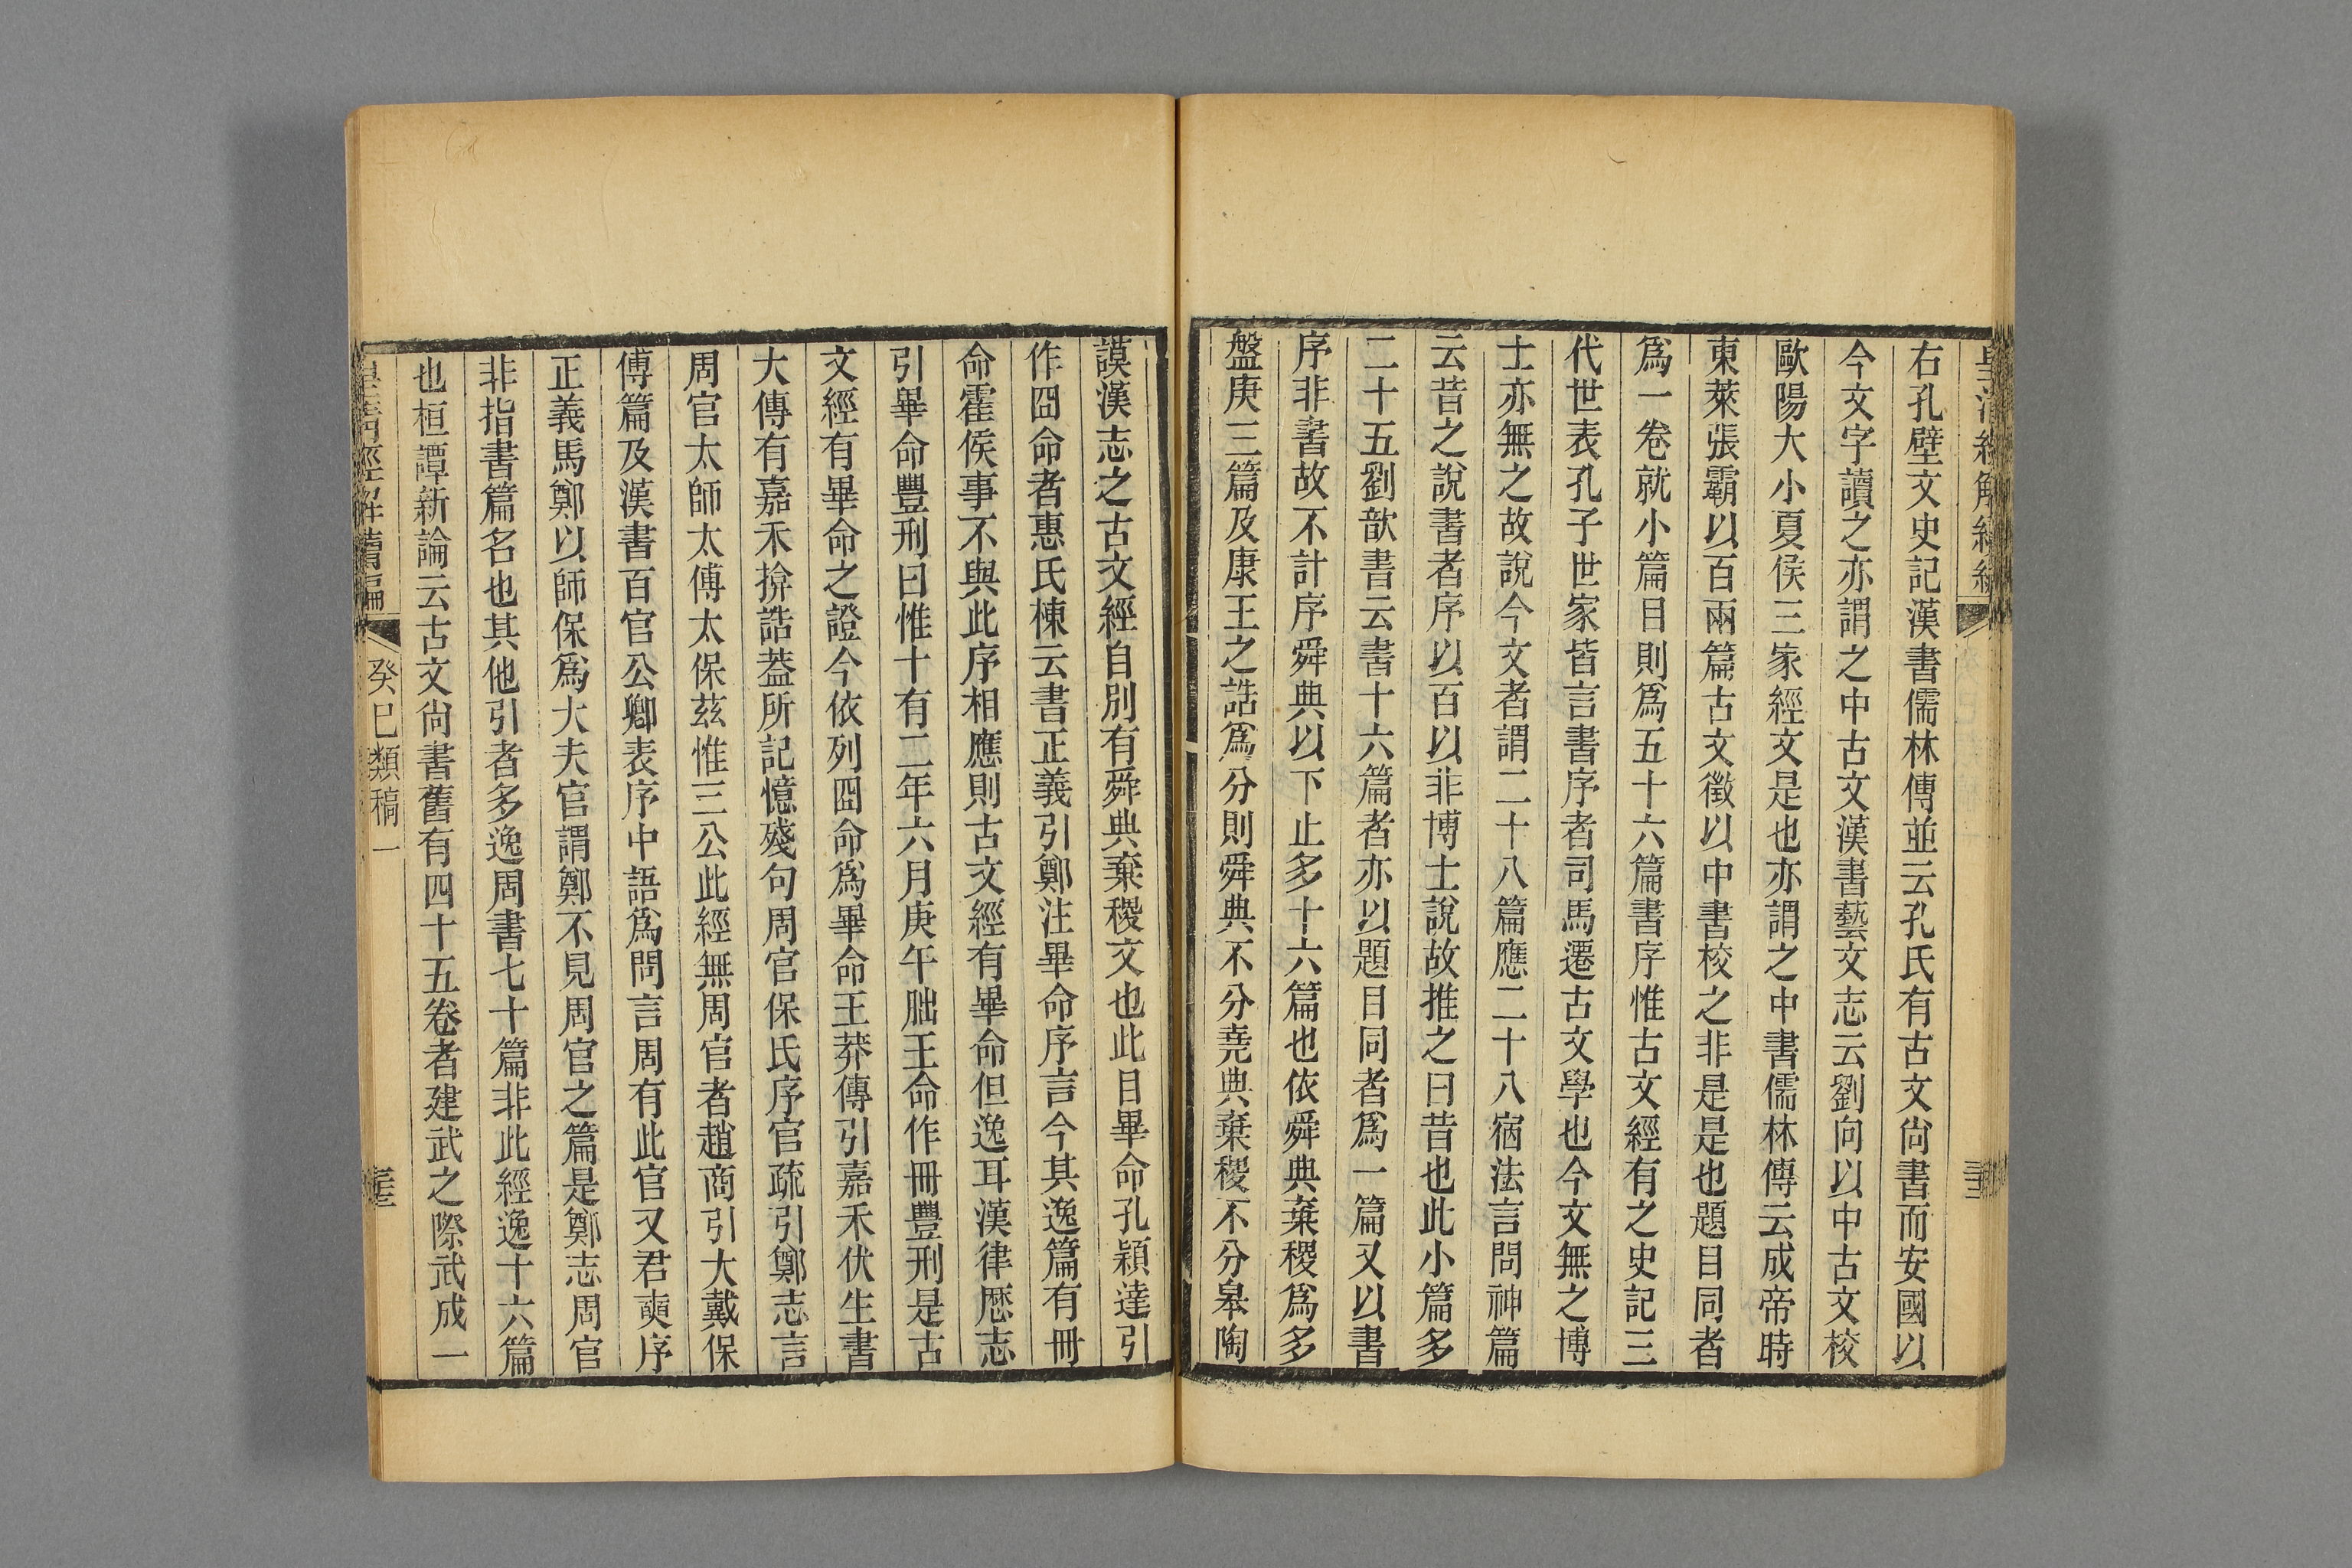 右孔壁文史記漢書儒林傳並云孔氏有古文尙書而安國以
今文字讀之亦謂之中古文漢書藝文志云劉向以中古文校
歐陽大小夏侯三家經文是也亦謂之中書儒林傳云成帝時
東萊張霸以百兩篇古文徵以中書校之非是是也題目同者
爲一卷就小篇目則爲五十六篇書序惟古文經有之史記三
代世表孔子世家皆言書序者司馬遷古文學也今文無之博
士亦無之故說今文者謂二十八篇應二十八宿法言問神篇
云昔之說書者序以百以非博士說故推之曰昔也此小篇多
二十五劉歆書云書十六篇者亦以題目同者爲一篇又以書
序非書故不計序舜典以下止多十六篇也依舜典棄稷爲多
盤庚三篇及康王之誥爲分則舜典不分堯典棄稷不分皋陶
謨漢志之古文經自別有舜典棄稷文也此目畢命孔穎達引
作囧命者惠氏棟云書正義引鄭注畢命序言今其逸篇有冊
命霍侯事不與此序相應則古文經有畢命但逸耳漢律歷志
引畢命豐刑曰惟十有二年六月庚午朏王命作冊豐刑是古
文經有畢命之證今依列囧命爲畢命王莽傳引嘉禾伏生書
大傳有嘉禾揜誥葢所記憶殘句周官保氏序官疏引鄭志言
周官太師太傅太保茲惟三公此經無周官者趙商引大戴保
傅篇及漢書百官公卿表序中語爲問言周有此官又君奭序
正義馬鄭以師保爲大夫官謂鄭不見周官之篇是鄭志周官
非指書篇名也其他引者多逸周書七十篇非此經逸十六篇
也桓譚新論云古文尙書舊有四十五卷者建武之際武成一
皇淸經解續編
癸巳類稿一